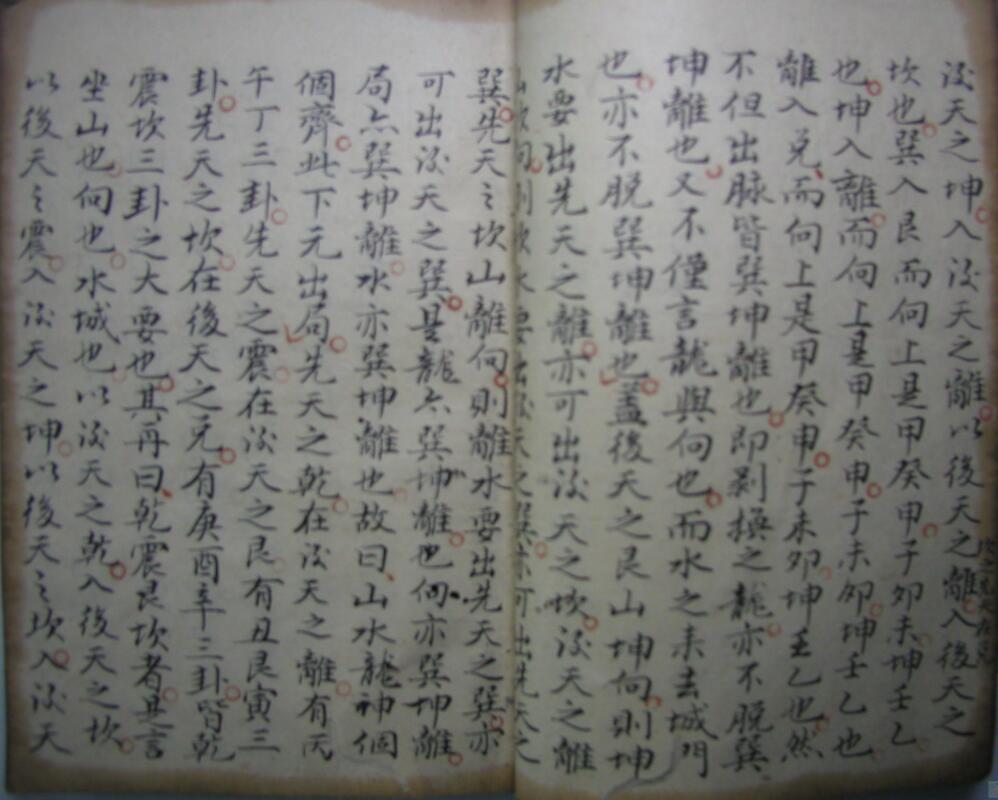 後天之坤入後天之離以後天之離入後天之
坎也巽入艮而向上是甲癸甲子卯未坤壬乙
也坤入離而向上是甲癸申子未卯坤壬乙也
離入兌而向上是甲癸申子未卯坤壬乙也然
不但出脉皆巽坤離也即剝換之龍亦不脫巽
坤離也又不僅言龍與向也而水之來去城門
也亦不脫巽坤離也蓋後天之艮山坤向則坤
水要出先天之離亦可出後天之坎後天之離
巽先天之坎山離向則離水要出先天之巽亦
可出後天之巽是龍亦巽坤離也向亦巽坤離
局亦巽坤離水亦巽坤離也故曰山水龍神個
個齊此下元出局先天之乾在後天之離有丙
午丁三卦先天之震在後天之艮有丑艮寅三
卦先天之坎在後天之兌有庚酉辛三卦皆乾
震坎三卦之大要也其再曰乾震艮坎者是言
坐山也向也水城也以後天之乾入後天之坎
以後天之震入後天之坤以後天之坎入後天